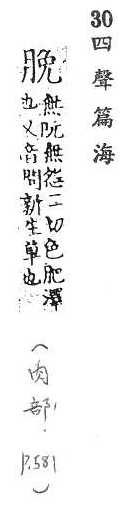 30四聲篇海
脕無阮無怨二切色肥澤
也又音問新生草也
(肉部.P.581)